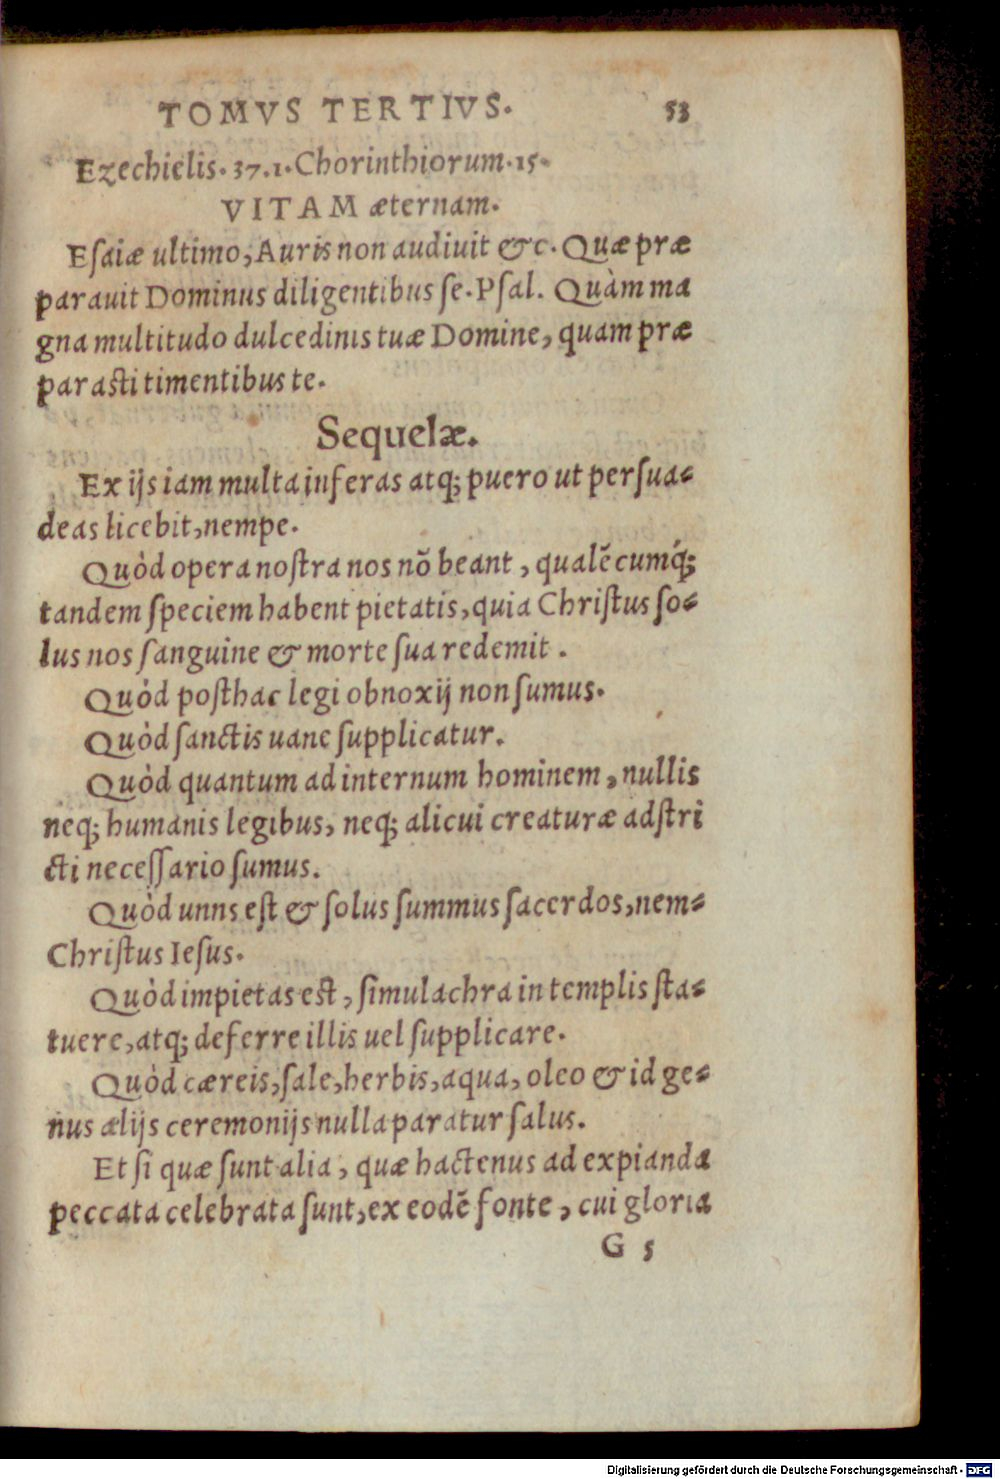 TOMVS TERTIVS. 53
Ezechielis. 37. 1. Chorinthiorum. 15.
VITAM æternam.
Esaiæ ultimo, Auris non audiuit &c. Quæ præ
parauit Dominus diligentibus se. Psal. Quàm ma
gna multitudo dulcedinis tuæ Domine, quam præ
parasti timentibus te.
Sequelæ.
Ex ijs iam multa inferas atq; puero ut persua-
deas licebit, nempe.
Quòd opera nostra nos nō beant, qualē cumq́;
tandem speciem habent pietatis, quia Christus so-
lus nos sanguine & morte sua redemit.
Quòd posthac legi obnoxij non sumus.
Quòd sanctis uane supplicatur.
Quòd quantum ad internum hominem, nullis
neq; humanis legibus, neq; alicui creaturæ adstri
cti necessario sumus.
Quòd unns est & solus summus sacerdos, nem-
Christus Iesus.
Quòd impietas est, simulachra in templis sta-
tuere, atq; deferre illis uel supplicare.
Quòd cæreis, sale, herbis, aqua, oleo & id ge-
nus ælijs ceremonijs nulla paratur salus.
Et si quæ sunt alia, quæ hactenus ad expianda
peccata celebrata sunt, ex eodē fonte, cui gloria
G 5
Digitalisierung gefördert durch die Deutsche Forschungsgemeinschaft - DFG